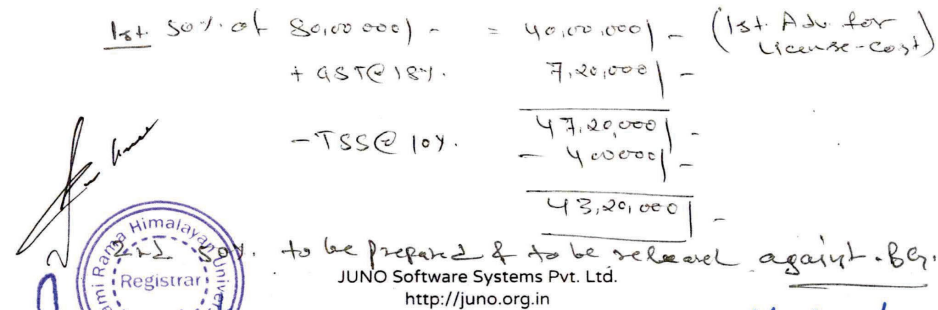 1st. 50% of 80,00,000/- = 40,00,000/- (1st. Adv. for License-cost)
+ GST@18%. 7,20,000/-
47,20,000/-
-TSS@10%. - 400000/-
43,20,000/-
2nd 50%. to be prepared & to be released against BG.
Himalayan
Univer
Registrar
JUNO Software Systems Pvt. Ltd.
http://juno.org.in